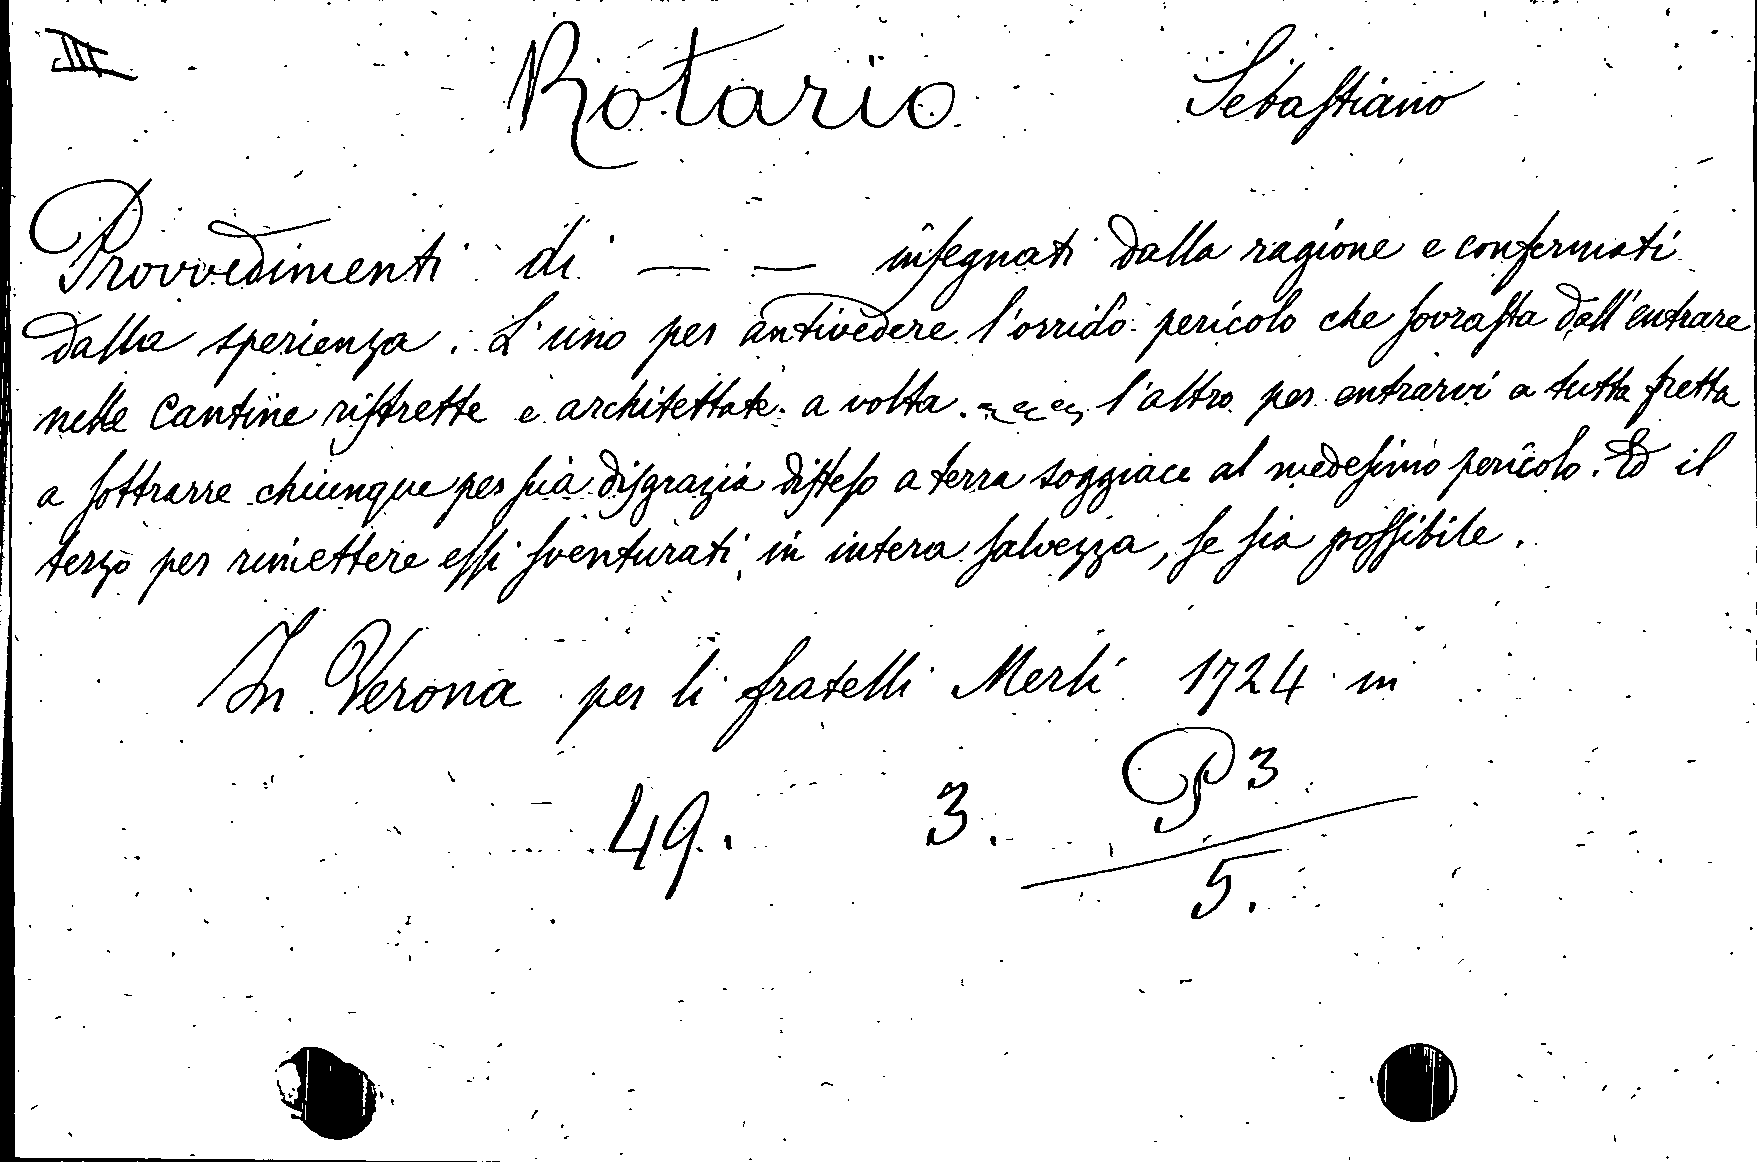 III
Rotario Sebastiano
Provvedimenti di — — insegnati dalla ragione e confermati
dalla sperienza. L'uno per antivedere l'orrido pericolo che sovrasta dall'entrare
nelle Cantine ristrette e architettate a volta. l'altro per entrarvi a tutta fretta
a sottrarre chiunque per sua disgrazia disteso a terra soggiace al medesimo pericolo. Ed il
terzo per rimettere essi sventurati in intera salvezza, se sia possibile.
In Verona per li fratelli Merli 1724 in
49. 3. P3
5.